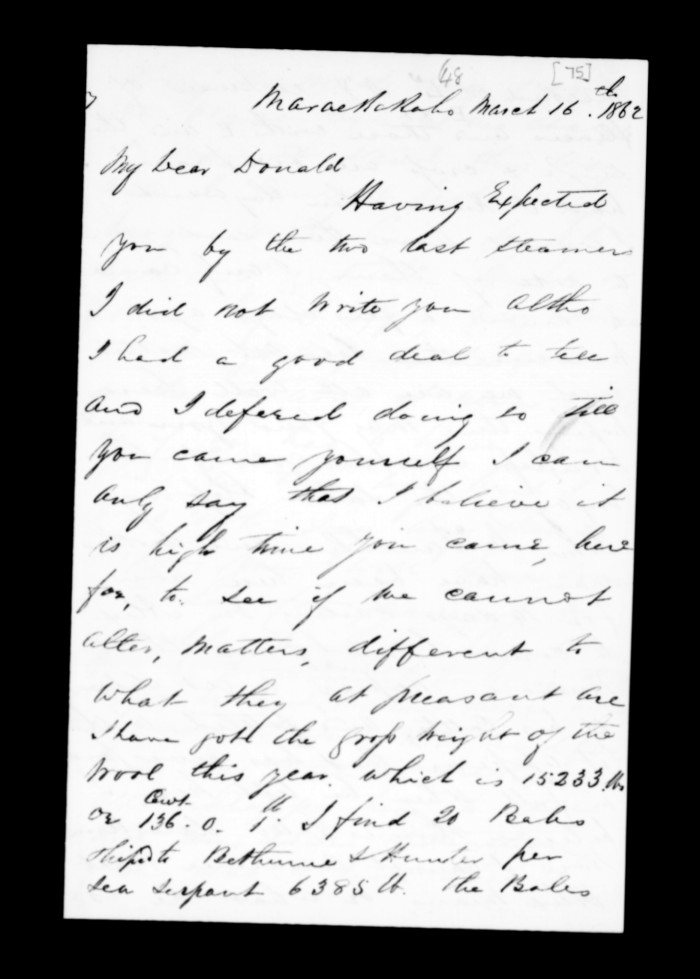 48 [75]
Maraekakaho March 16.th 1862
My Dear Donald
Having Expected
you by the two last steamers
I did not write you altho
I had a good deal to tell
and I defered doing so till
you came yourself I can
only say that I believe it
is high time you came, here
for, to see if we cannot
alter, matters, different to
what they at preasant are
I have gott the gross weight of the
wool this year. which is 15233 lbs
Cwt lb
or 136. 0. 1. I find 20 Bales
shipd to Bethune & Hunter per
sea serpant 6385 lb. the Bales